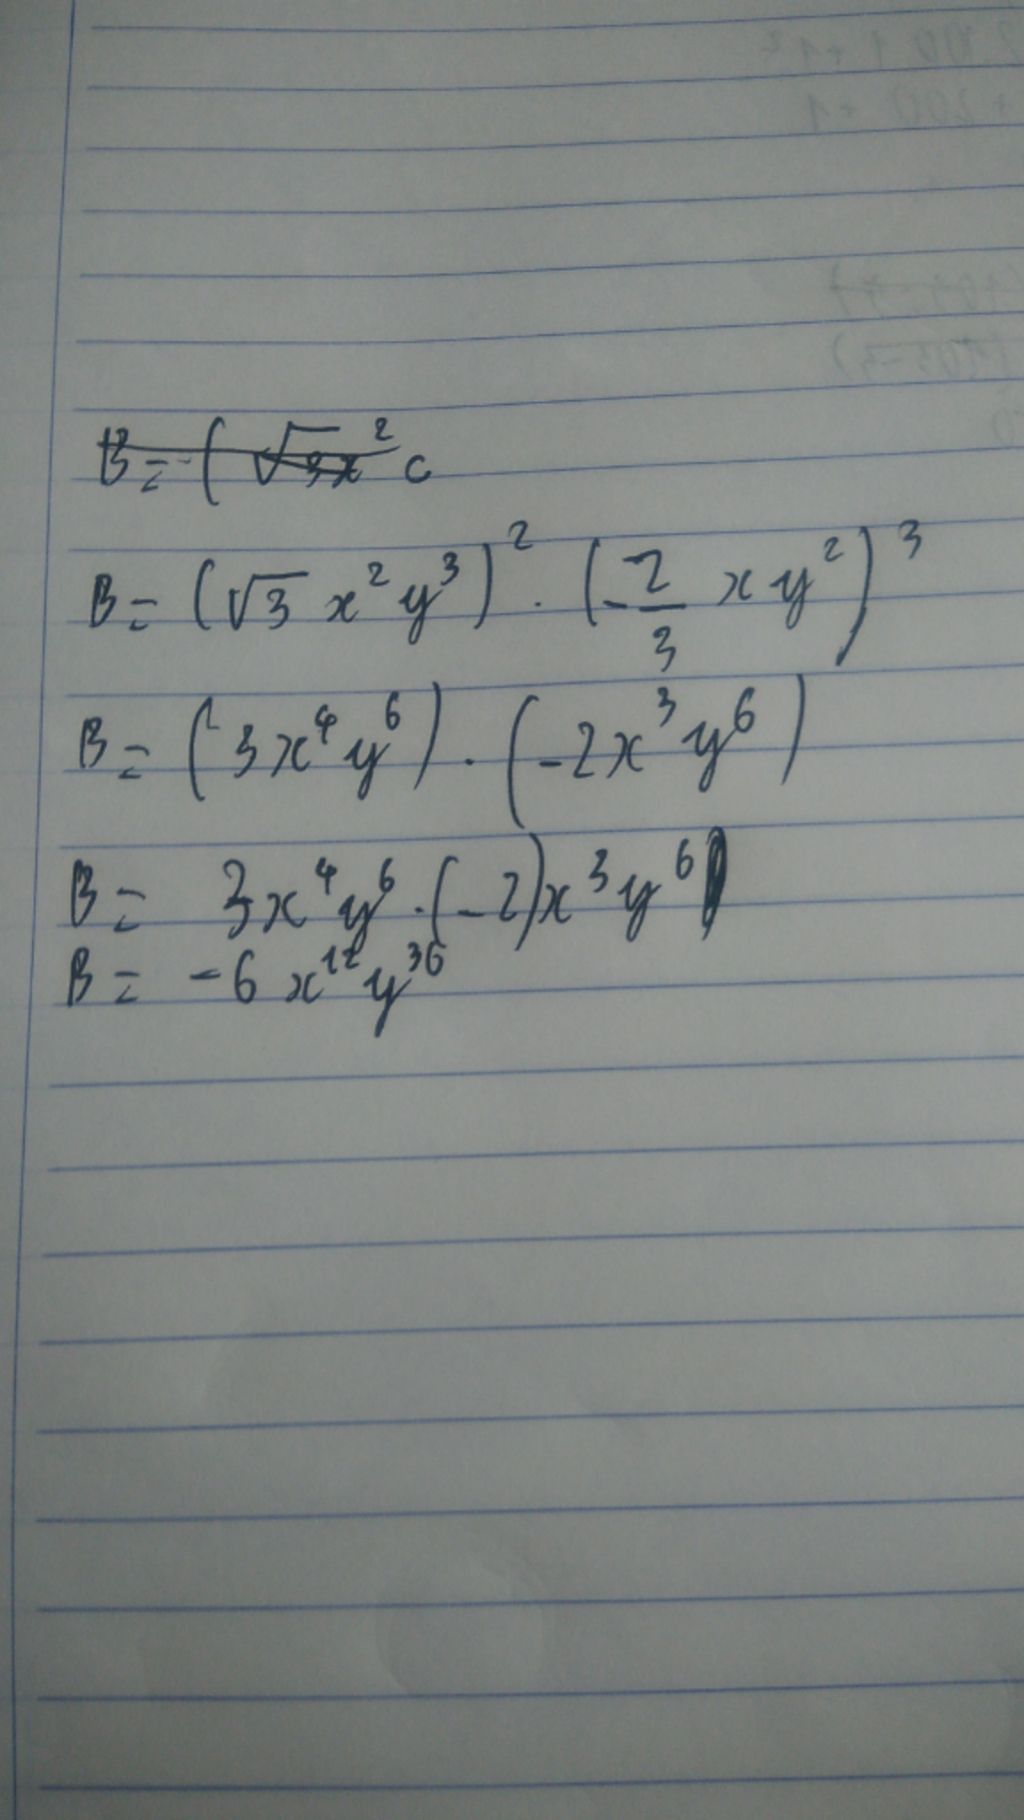 B = (√3x² c
B = (√3 x² y³)² . (-2/3 x y²)³
B = (3x⁴y⁶) . (-2x³y⁶)
B = 3x⁴y⁶ . (-2)x³y⁶
B = -6x¹²y³⁶